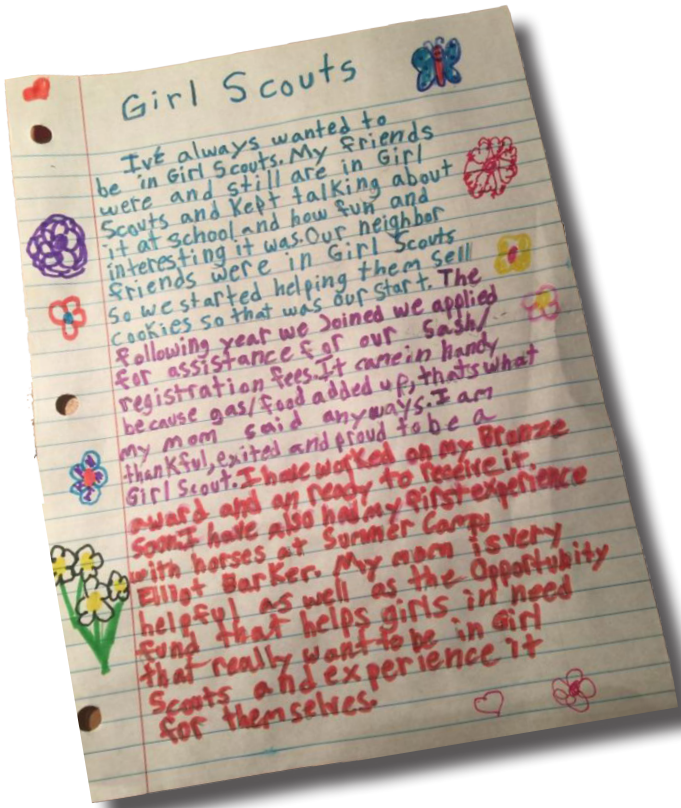 Girl Scouts
I've always wanted to
be in Girl Scouts. My friends
were and still are in Girl
Scouts and Kept talking about
it at school and how fun and
interesting it was. Our neighbor
friends were in Girl Scouts
so we started helping them sell
cookies so that was our start. The
following year we Joined we applied
for assistance for our sash/
registration fees. It came in handy
because gas/food added up, thats what
my mom said anyways. I am
thankful, exited and proud to be a
Girl Scout. I have worked on my Bronze
award and an ready to receive it
soon. I have also had my first experience
with horses at Summer Camp,
Elliot Barker. My mom is very
helpful as well as the Opportunity
fund that helps girls in need
that really want to be in Girl
Scouts and experience it
for themselves.